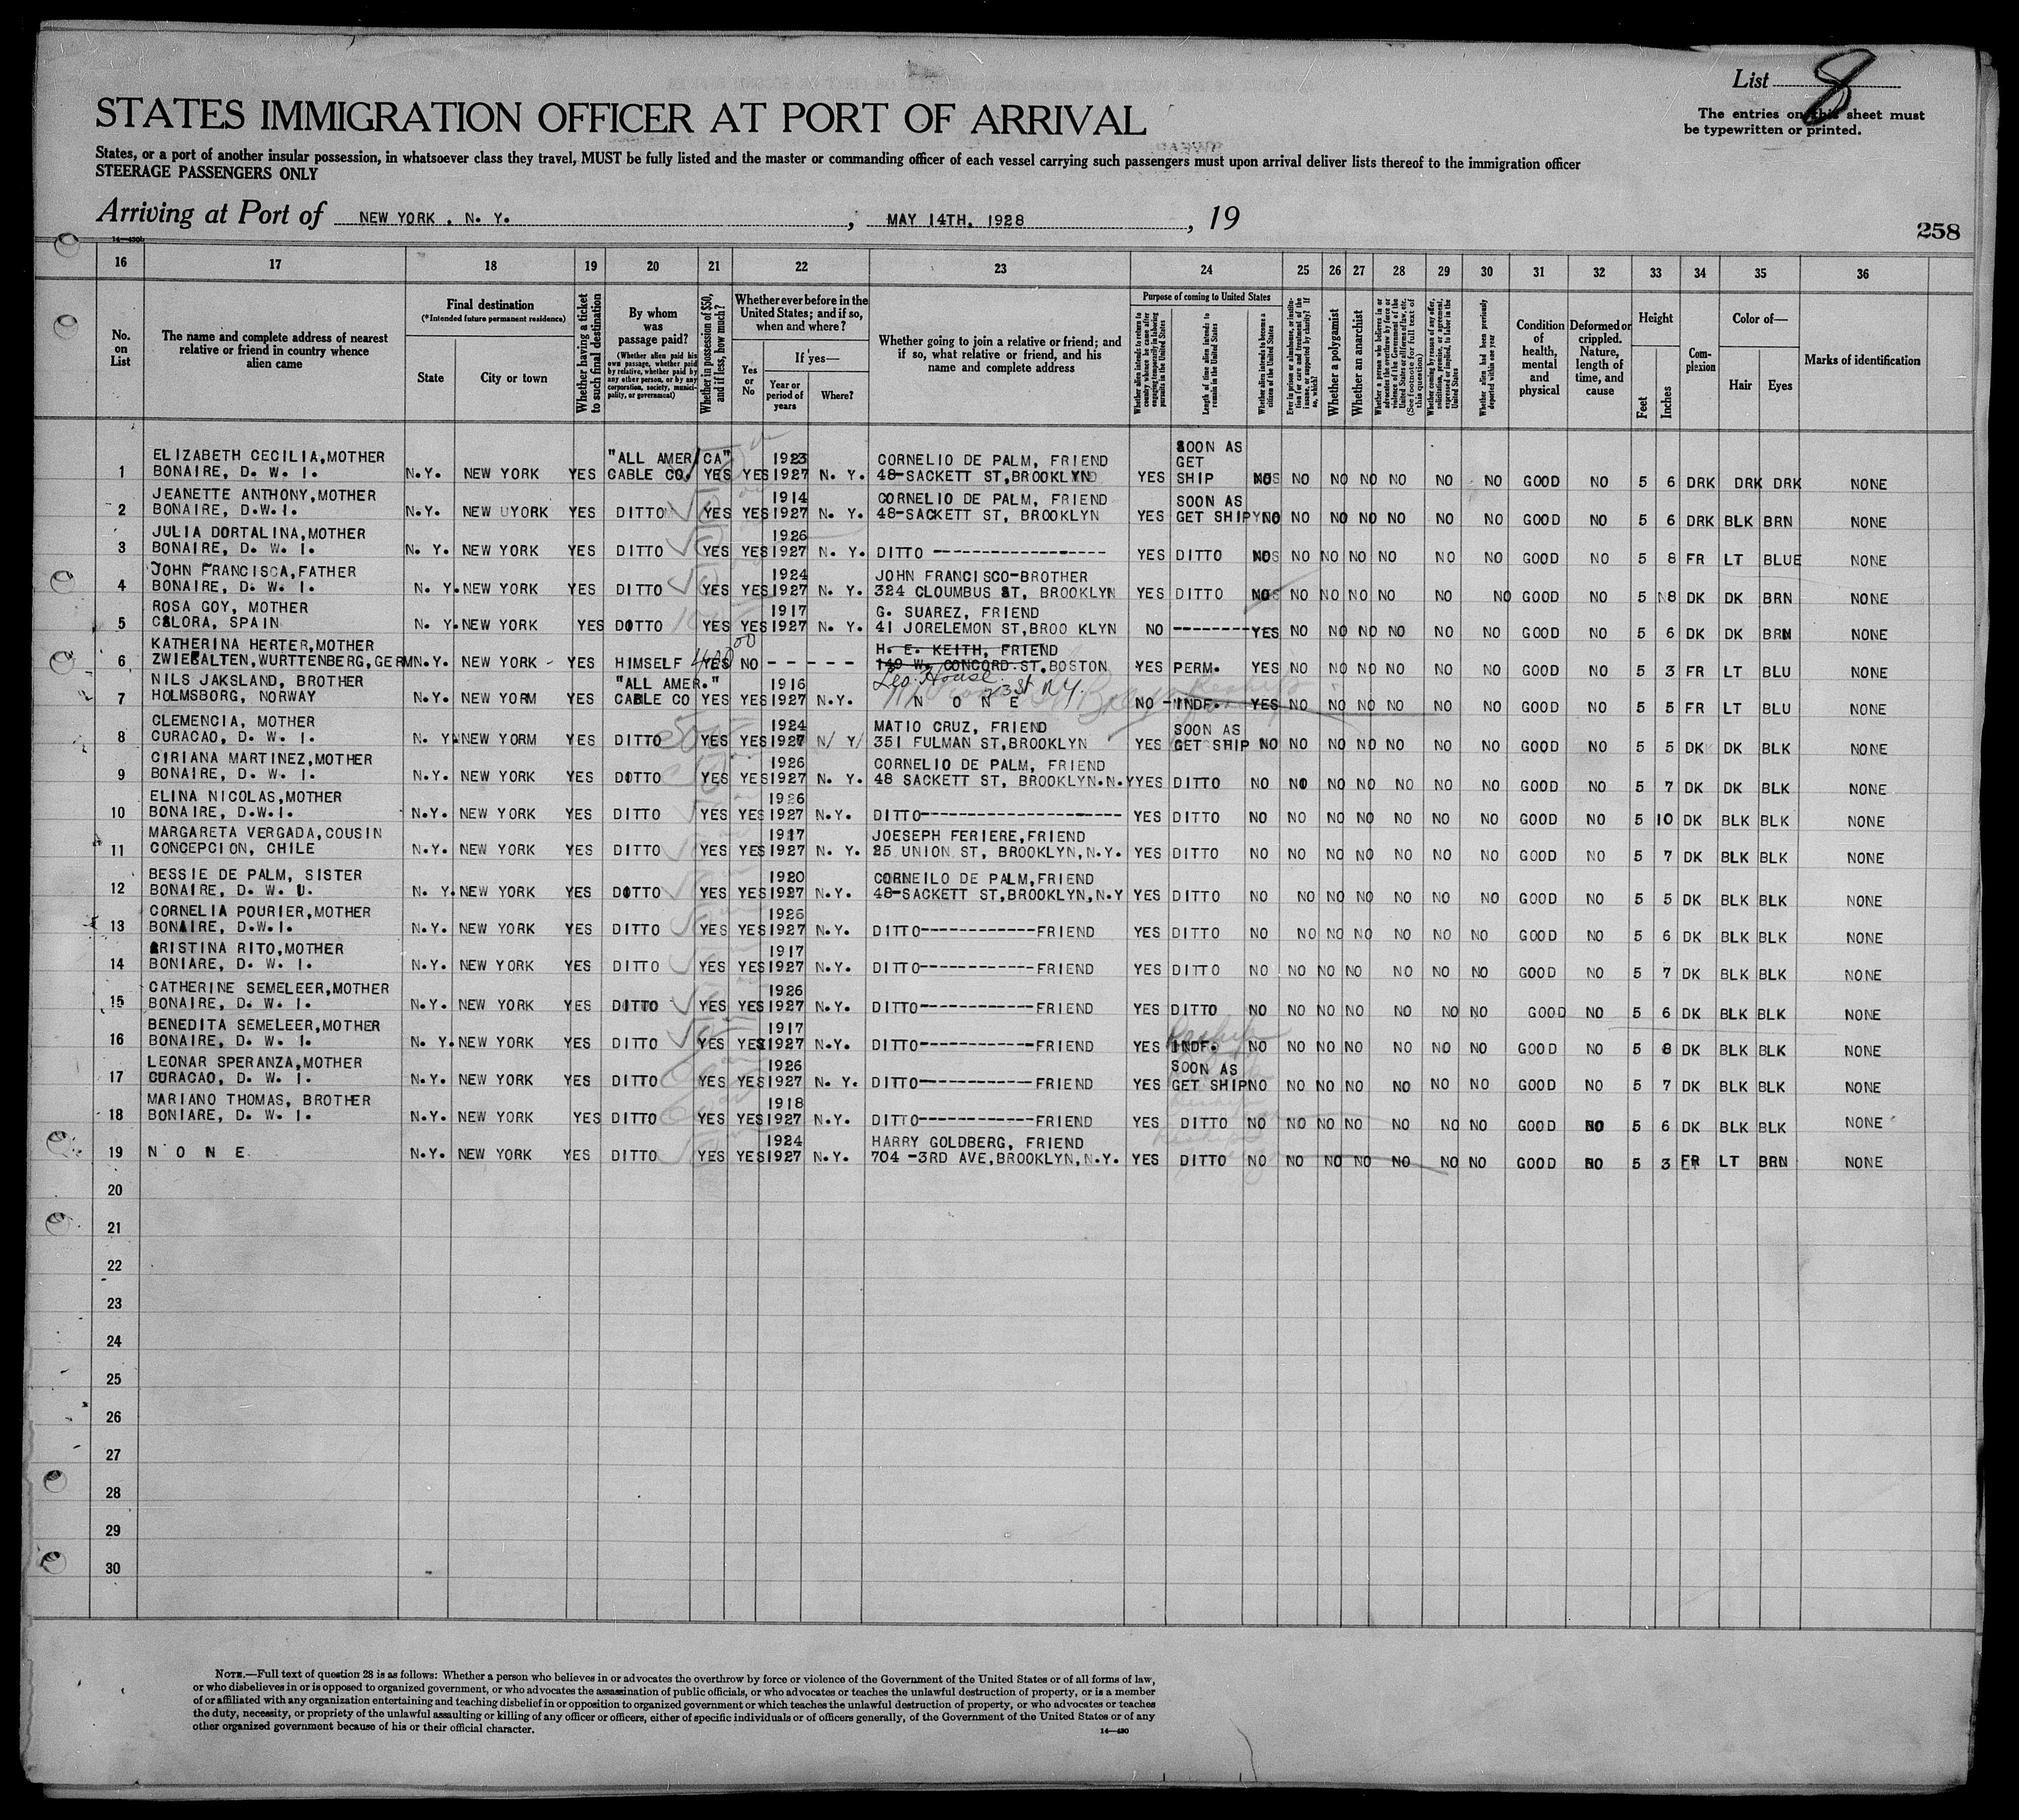 List 8
The entries on this sheet must
be typewritten or printed.
STATES IMMIGRATION OFFICER AT PORT OF ARRIVAL
States, or a port of another insular possession, in whatsoever class they travel, MUST be fully listed and the master or commanding officer of each vessel carrying such passengers must upon arrival deliver lists thereof to the immigration officer
STEERAGE PASSENGERS ONLY
Arriving at Port of NEW YORK, N. Y., MAY 14TH, 1928, 19
258
14—430b
16 17 18 19 20 21 22 23 24 25 26 27 28 29 30 31 32 33 34 35 36
No. on List
The name and complete address of nearest relative or friend in country whence alien came
Final destination
(*Intended future permanent residence)
State
City or town
Whether having a ticket to such final destination
By whom was passage paid?
(Whether alien paid his own passage, whether paid by relative, whether paid by any other person, or by any corporation, society, municipality, or government)
Whether in possession of $50, and if less, how much?
Whether ever before in the United States; and if so, when and where?
Yes or No
If yes—
Year or period of years
Where?
Whether going to join a relative or friend; and if so, what relative or friend, and his name and complete address
Purpose of coming to United States
Whether alien intends to return to country whence he came after engaging temporarily in laboring pursuits in the United States
Length of time alien intends to remain in the United States
Whether alien intends to become a citizen of the United States
Ever in prison or almshouse, or institution for care and treatment of the insane, or supported by charity? If so, which?
Whether a polygamist
Whether an anarchist
Whether a person who believes in or advocates the overthrow by force or violence of the Government of the United States or all forms of law, etc. (See footnote for full text of this question)
Whether coming by reason of any offer, solicitation, promise, or agreement, expressed or implied, to labor in the United States
Whether alien had been previously deported within one year
Condition of health, mental and physical
Deformed or crippled. Nature, length of time, and cause
Height
Feet
Inches
Complexion
Color of—
Hair
Eyes
Marks of identification
ELIZABETH CECILIA,MOTHER "ALL AMERICA" 1923 CORNELIO DE PALM, FRIEND SOON AS GET
1 BONAIRE, D. W. I. N.Y. NEW YORK YES CABLE CO. YES YES 1927 N. Y. 48-SACKETT ST,BROOKLYN YES SHIP NO NO NO NO NO NO NO GOOD NO 5 6 DRK DRK DRK NONE
JEANETTE ANTHONY,MOTHER 1914 CORNELIO DE PALM, FRIEND SOON AS
2 BONAIRE, D.W.I. N.Y. NEW UYORK YES DITTO YES YES 1927 N. Y. 48-SACKETT ST, BROOKLYN YES GET SHIP NO NO NO NO NO NO NO GOOD NO 5 6 DRK BLK BRN NONE
JULIA DORTALINA,MOTHER 1926
3 BONAIRE, D. W. I. N. Y. NEW YORK YES DITTO YES YES 1927 N. Y. DITTO ------------------ YES DITTO NO NO NO NO NO NO NO GOOD NO 5 8 FR LT BLUE NONE
JOHN FRANCISCA,FATHER 1924 JOHN FRANCISCO-BROTHER
4 BONAIRE, D. W. I. N. Y. NEW YORK YES DITTO YES YES 1927 N. Y. 324 CLOUMBUS ST, BROOKLYN YES DITTO NO NO NO NO NO NO NO GOOD NO 5 8 DK DK BRN NONE
ROSA GOY, MOTHER 1917 G. SUAREZ, FRIEND
5 CALORA, SPAIN N. Y. NEW YORK YES DITTO YES YES 1927 N. Y. 41 JORELEMON ST,BROO KLYN NO -------- YES NO NO NO NO NO NO GOOD NO 5 6 DK DK BRN NONE
KATHERINA HERTER,MOTHER H. E. KEITH, FRIEND
6 ZWIEFALTEN,WURTTENBERG,GERM N.Y. NEW YORK - YES HIMSELF 400 00 YES NO - - - - - 149 W. CONCORD ST,BOSTON YES PERM. YES NO NO NO NO NO NO GOOD NO 5 3 FR LT BLU NONE
Leo House
23 St N.Y.
NILS JAKSLAND, BROTHER "ALL AMER." 1916
7 HOLMSBORG, NORWAY N.Y. NEW YORM YES CABLE CO YES YES 1927 N.Y. N O N E NO INDF. YES NO NO NO NO NO NO GOOD NO 5 5 FR LT BLU NONE
CLEMENCIA, MOTHER 1924 MATIO CRUZ, FRIEND SOON AS
8 CURACAO, D. W. I. N. Y. NEW YORM YES DITTO YES YES 1927 N/ Y/ 351 FULMAN ST,BROOKLYN YES GET SHIP NO NO NO NO NO NO NO GOOD NO 5 5 DK DK BLK NONE
CIRIANA MARTINEZ,MOTHER 1926 CORNELIO DE PALM, FRIEND
9 BONAIRE, D. W. I. N.Y. NEW YORK YES DITTO YES YES 1927 N. Y. 48 SACKETT ST, BROOKLYN.N.Y YES DITTO NO NO NO NO NO NO NO GOOD NO 5 7 DK DK BLK NONE
ELINA NICOLAS,MOTHER 1926
10 BONAIRE, D.W.I. N.Y. NEW YORK YES DITTO YES YES 1927 N.Y. DITTO--------------------- YES DITTO NO NO NO NO NO NO NO GOOD NO 5 10 DK BLK BLK NONE
MARGARETA VERGADA,COUSIN 1917 JOESEPH FERIERE,FRIEND
11 CONCEPCION, CHILE N.Y. NEW YORK YES DITTO YES YES 1927 N. Y. 25 UNION ST, BROOKLYN,N.Y. YES DITTO NO NO NO NO NO NO NO GOOD NO 5 7 DK BLK BLK NONE
BESSIE DE PALM, SISTER 1920 CORNEILO DE PALM,FRIEND
12 BONAIRE, D. W. U. N. Y. NEW YORK YES DITTO YES YES 1927 N.Y. 48-SACKETT ST,BROOKLYN,N.Y YES DITTO NO NO NO NO NO NO NO GOOD NO 5 5 DK BLK BLK NONE
CORNELIA POURIER,MOTHER 1926
13 BONAIRE, D.W.I. N.Y. NEW YORK YES DITTO YES YES 1927 N.Y. DITTO------------FRIEND YES DITTO NO NO NO NO NO NO NO GOOD NO 5 6 DK BLK BLK NONE
CRISTINA RITO,MOTHER 1917
14 BONIARE, D. W. I. N.Y. NEW YORK YES DITTO YES YES 1927 N.Y. DITTO------------FRIEND YES DITTO NO NO NO NO NO NO NO GOOD NO 5 7 DK BLK BLK NONE
CATHERINE SEMELEER,MOTHER 1926
15 BONAIRE, D. W. I. N.Y. NEW YORK YES DITTO YES YES 1927 N.Y. DITTO------------FRIEND YES DITTO NO NO NO NO NO NO NO GOOD NO 5 6 DK BLK BLK NONE
BENEDITA SEMELEER,MOTHER 1917
16 BONAIRE, D. W. I. N. Y. NEW YORK YES DITTO YES YES 1927 N.Y. DITTO------------FRIEND YES INDF. NO NO NO NO NO NO NO GOOD NO 5 8 DK BLK BLK NONE
LEONAR SPERANZA,MOTHER 1926 SOON AS
17 CURACAO, D. W. I. N.Y. NEW YORK YES DITTO YES YES 1927 N. Y. DITTO------------FRIEND YES GET SHIP NO NO NO NO NO NO NO GOOD NO 5 7 DK BLK BLK NONE
MARIANO THOMAS, BROTHER 1918
18 BONIARE, D. W. I. N.Y. NEW YORK YES DITTO YES YES 1927 N.Y. DITTO------------FRIEND YES DITTO NO NO NO NO NO NO NO GOOD NO 5 6 DK BLK BLK NONE
1924 HARRY GOLDBERG, FRIEND
19 N O N E N.Y. NEW YORK YES DITTO YES YES 1927 N.Y. 704 -3RD AVE,BROOKLYN,N.Y. YES DITTO NO NO NO NO NO NO NO GOOD NO 5 3 FR LT BRN NONE
20
21
22
23
24
25
26
27
28
29
30
NOTE.—Full text of question 28 is as follows: Whether a person who believes in or advocates the overthrow by force or violence of the Government of the United States or of all forms of law,
or who disbelieves in or is opposed to organized government, or who advocates the assassination of public officials, or who advocates or teaches the unlawful destruction of property, or is a member
of or affiliated with any organization entertaining and teaching disbelief in or opposition to organized government or which teaches the unlawful destruction of property, or who advocates or teaches
the duty, necessity, or propriety of the unlawful assaulting or killing of any officer or officers, either of specific individuals or of officers generally, of the Government of the United States or of any
other organized government because of his or their official character.
14—430